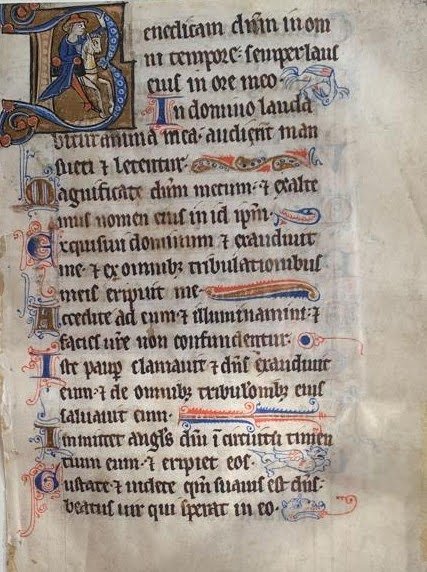 Benedicam dn̄m in om
ni tempore· semper laus
eius in ore meo·
In domino lauda
bitur anima mea· audient man
sueti ⁊ letentur·
Magnificate dn̄m mecum· ⁊ exalte
mus nomen eius in id ip̄m·
Exquisiui dominum ⁊ exaudiuit
me· ⁊ ex omnibꝫ tribulationibus
meis eripuit me·
Accedite ad eum ⁊ illuminamini· ⁊
facies ur̄e non confundentur·
Iste paup̄ clamauit ⁊ dn̄s exaudiuit
eum· ⁊ de omnibꝫ tribulōnibꝫ eius
saluauit eum·
Inmittet angl̄s dn̄i ī circuitu timen
tium eum· ⁊ eripiet eos·
Gustate ⁊ uidete qm̄ suauis est dn̄s·
beatus uir qui sperat in eo·